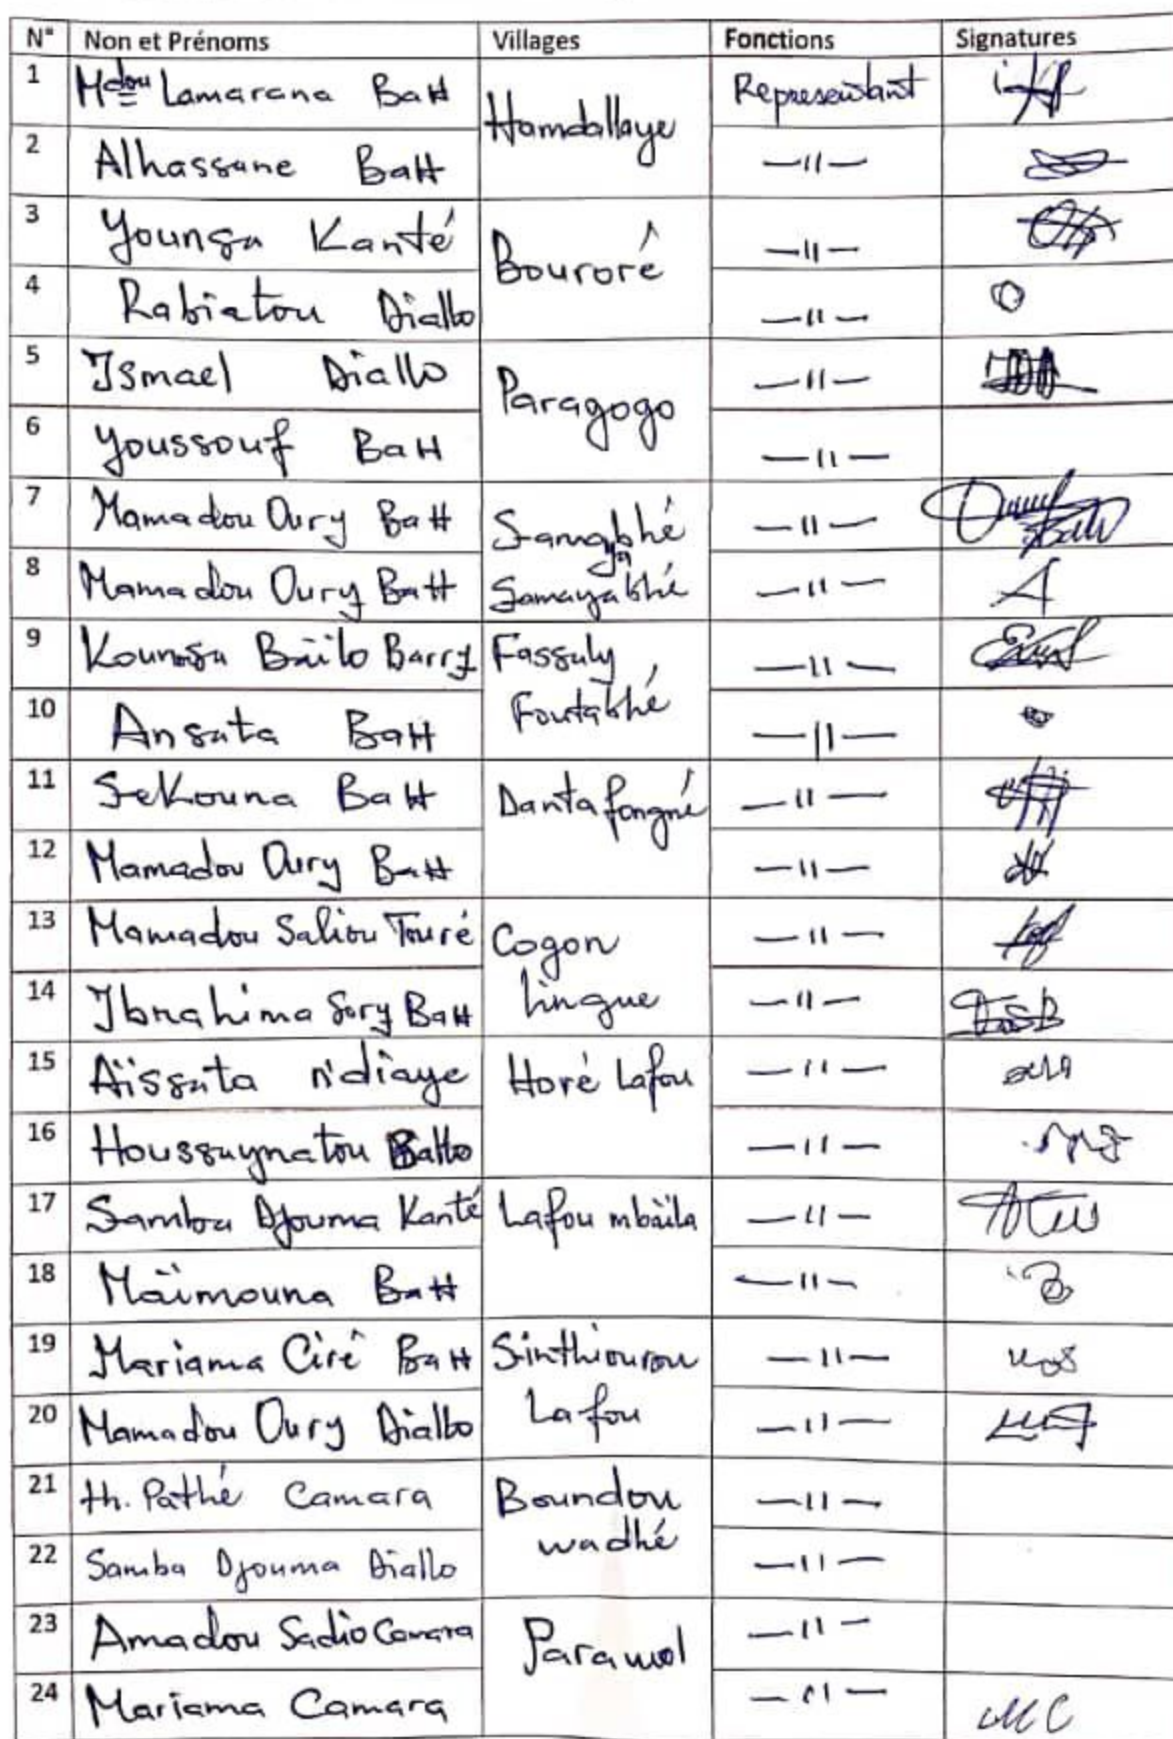 N° Non et Prénoms Villages Fonctions Signatures
1 Mdou Lamarana Bah Hamdallaye Representant
2 Alhassane Bah —11—
3 Younsa Kanté Bouroré —11—
4 Rabiatou Diallo —11—
5 Ismael Diallo Paragogo —11—
6 Youssouf Bah —11—
7 Mamadou Oury Bah —11—
8 Mamadou Oury Bah Samayabhé —11—
9 Bailo Barry Fassaly —11—
10 Ansata Bah Foutabhé —11—
11 Sekouna Bah Dantafongné —11—
12 Mamadou Oury Bah —11—
13 Mamadou Saliou Touré Cogon —11—
14 Ibrahima Sory Bah lingue —11—
15 Aïssata n'diaye Horé Lafou —11—
16 Houssaynatou —11—
17 Samba Djouma Kanté Lafou mbaïla —11—
18 Maïmouna Bah —11—
19 Mariama Cirê Bah Sinthiourou —11—
20 Mamadou Oury Diallo Lafou —11—
21 th. Pathé Camara Boundou —11—
22 Samba Djouma Diallo wadhé —11—
23 Amadou Sadio Camara Parawol —11—
24 Mariama Camara —11— MC